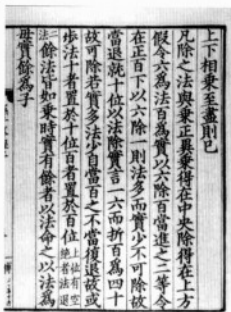 上下相乘至盡則已
凡除之法與乘正異乘得在中央除得在上方
假令六為法百為實以六除百當進之二等令
在正百下以六除一則法多而實少不可除故
當退就十位以法除實言一六而折百為四十
故可除若實多法少自當百之不當復退故或
步法十者置於十位百者置於百位
上位有空
絕者法退
二位
餘法皆如乘時實有餘者以法命之以法為
母實餘為子